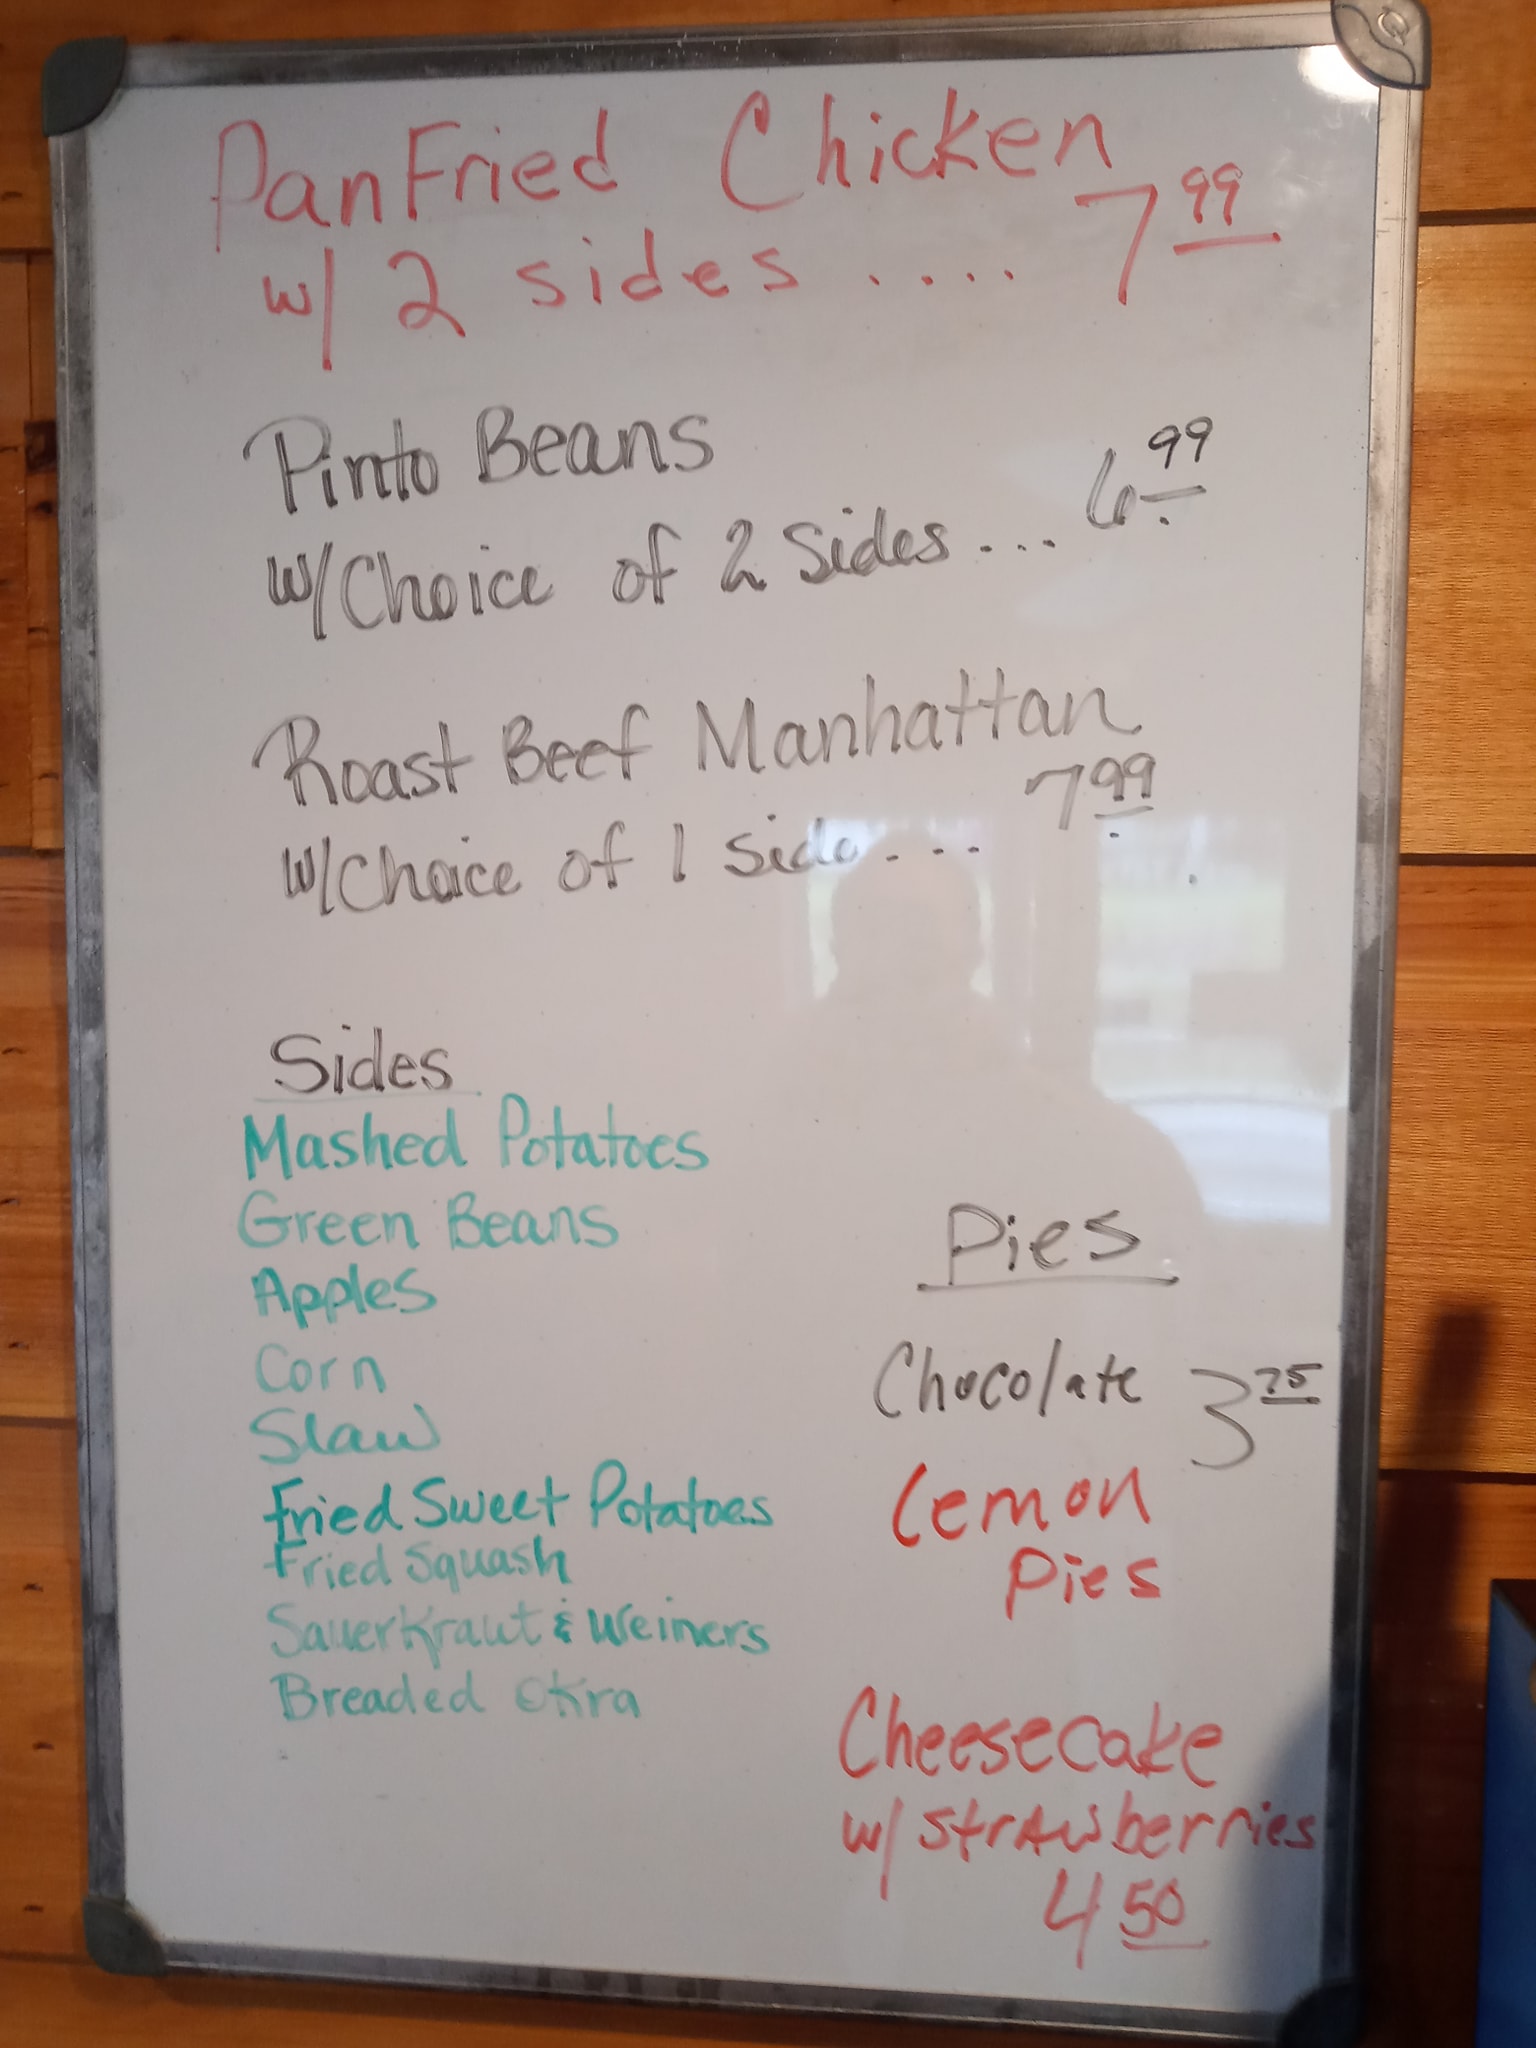 PanFried Chicken
w/ 2 sides .... 7 99
Pinto Beans
w/Choice of 2 Sides ... 6 99
Roast Beef Manhattan
w/Choice of 1 Side ... 7 99
Sides
Mashed Potatoes
Green Beans
Apples
Corn
Slaw
Fried Sweet Potatoes
Fried Squash
SauerKraut & Weiners
Breaded Okra
Pies
Chocolate 3 75
Lemon
Pies
Cheesecake
w/ strawberries
4 50